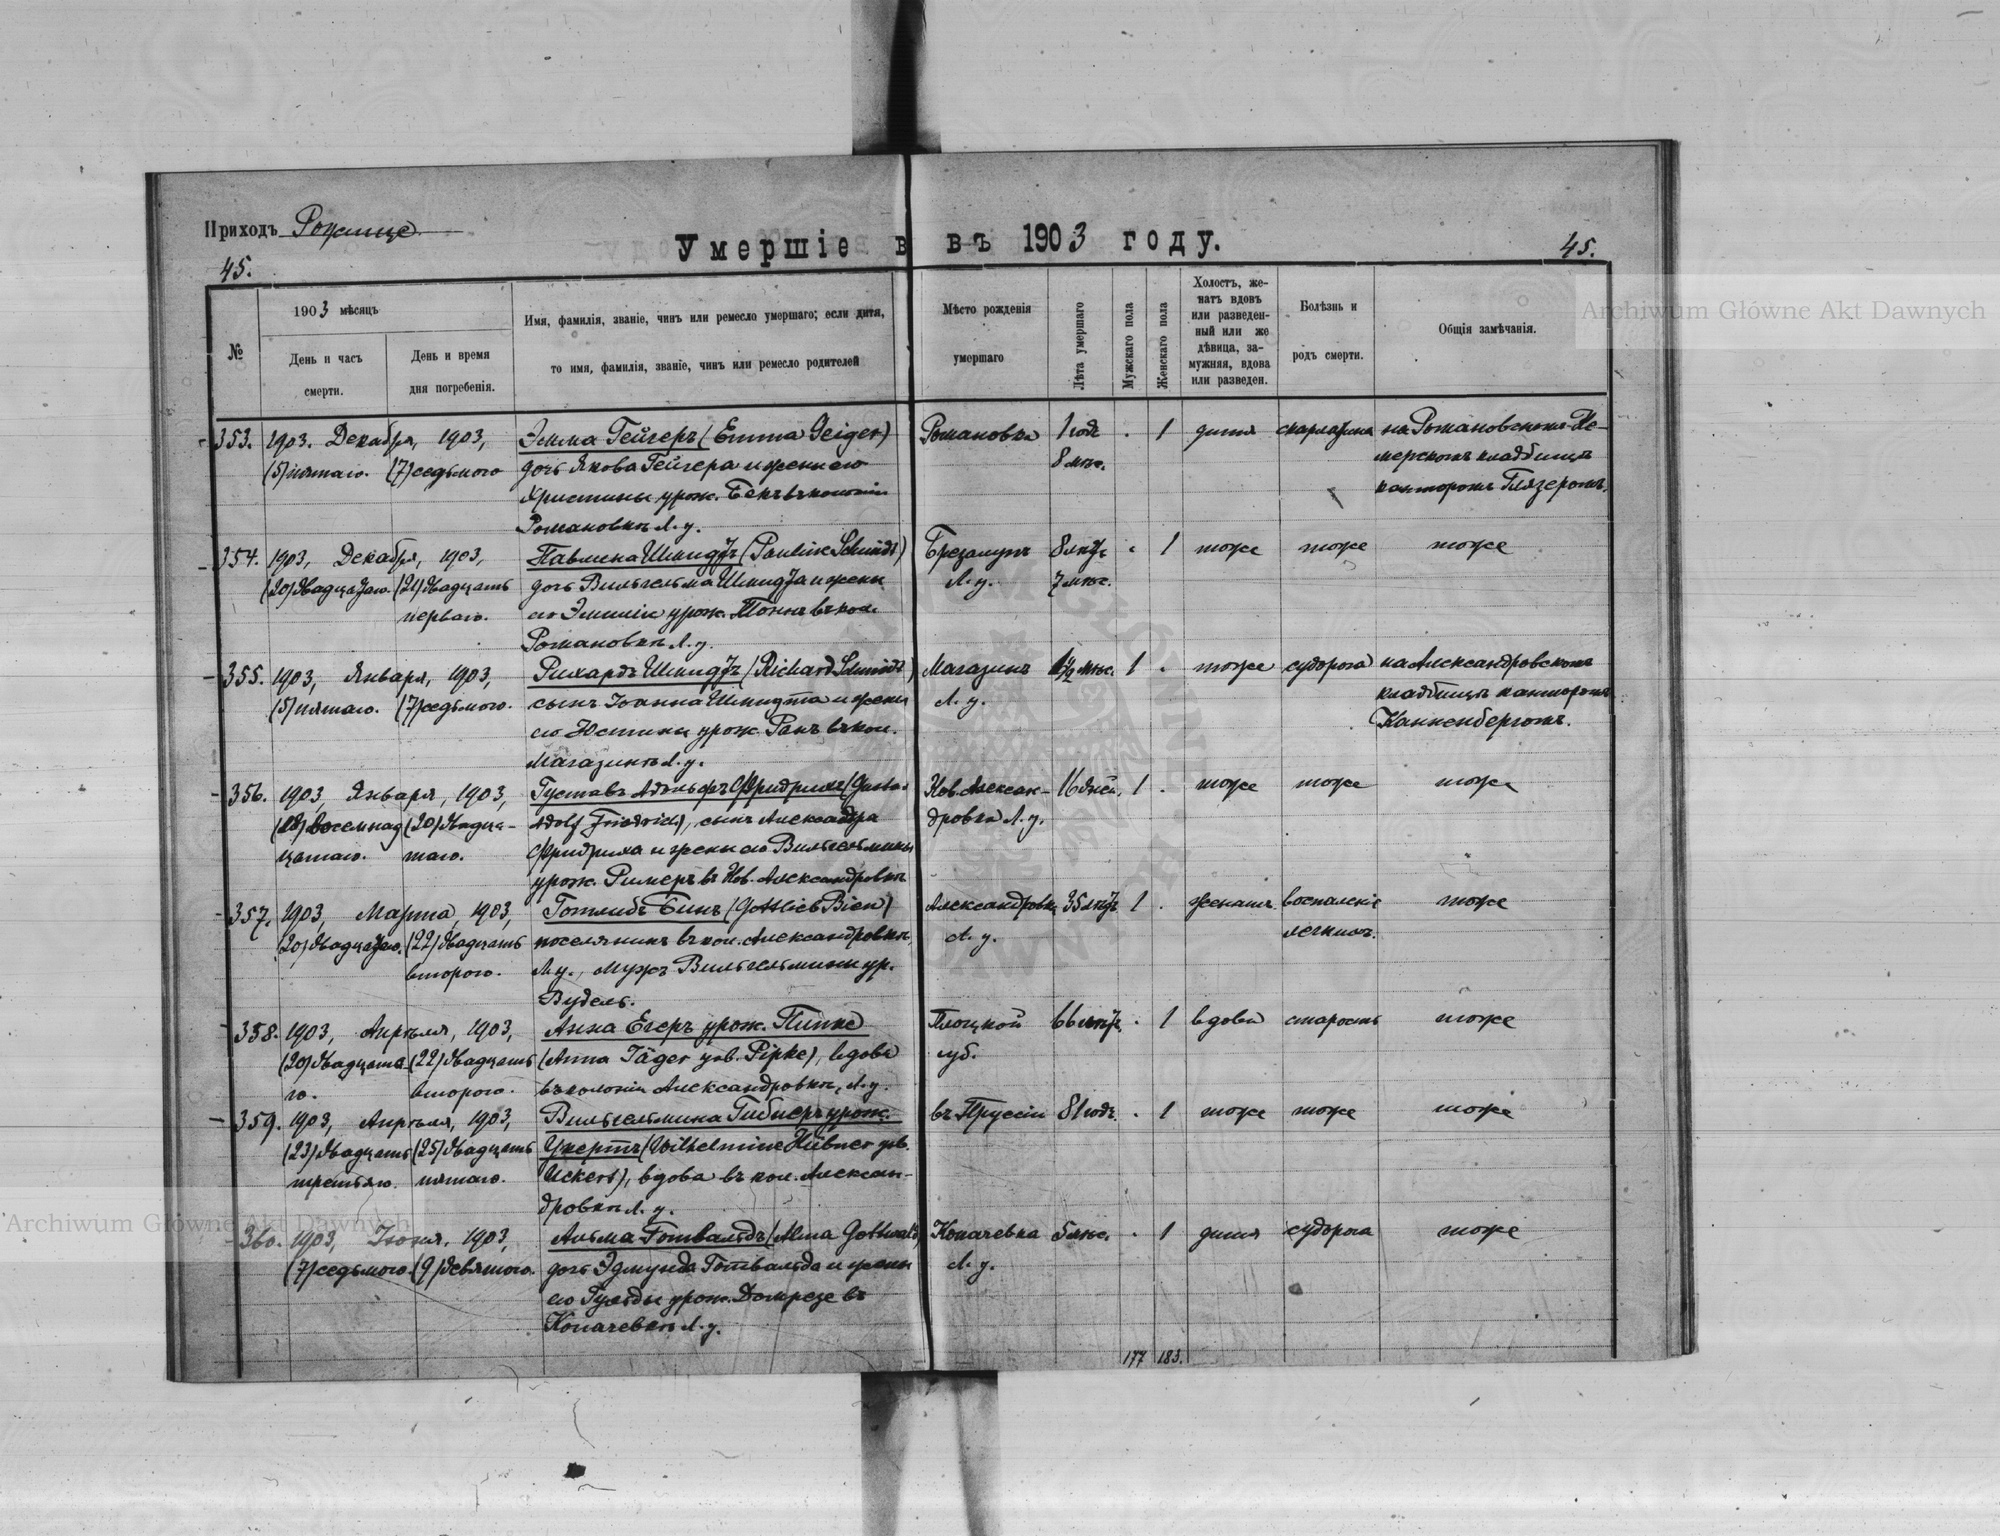 Приходъ Рожище
Умершіе в въ 1903 году.
45. 45.
Archiwum Główne Akt Dawnych
№
1903 мѣсяцъ
День и часъ смерти.
День и время дня погребенія.
Имя, фамилія, званіе, чинъ или ремесло умершаго; если дитя,
то имя, фамилія, званіе, чинъ или ремесло родителей
Мѣсто рожденія умершаго
Лѣта умершаго
Мужскаго пола
Женскаго пола
Холостъ, же-
натъ вдовъ
или разведен-
ный или же
дѣвица, за-
мужняя, вдова
или разведен.
Болѣзнь и родъ смерти.
Общія замѣчанія.
353. 1903. Декабря, 1903, Эмма Гейгеръ (Emma Geiger) Романовка 1 годъ . 1 дитя скарлатина на Романовскомъ Не-
(5) пятаго. (7) седьмого дочь Якова Гейгера и жены его 8 мѣс. мецкомъ кладбищѣ
Христины урож. Бекъ въ колоніи канторомъ Глязеромъ.
Романовкѣ Л. у.
354. 1903, Декабря, 1903, Павлина Шмидтъ (Pauline Schmidt) 8 лѣтъ . 1 тоже тоже тоже
(20) двадцатаго. (21) двадцать дочь Вильгельма Шмидта и жены Л. у. 7 мѣс.
перваго. его Эмиліи урож. въ кол.
Романовкѣ Л. у.
355. 1903, Января, 1903, Рихардъ Шмидтъ (Richard Schmidt) Магазинъ 1½ мѣс. 1 . тоже судорога на Александровскомъ
(5) пятаго. (7) седьмого. сынъ Іоанна Шмидта и жены Л. у. кладбищѣ канторомъ
его Юстины урож. Ранъ въ кол. Канненбергомъ.
Магазинъ Л. у.
356. 1903, Января, 1903, Густавъ Адольфъ Фридрихъ (Gustav Нов. Алексан- 16 дней, 1 . тоже тоже тоже
(18) восемнад (20) двадца- Adolf Friedrich), сынъ Александра дровка Л. у.
цатаго. таго. Фридриха и жены его Вильгельмины
урож. Римеръ въ Нов. Александровкѣ
357. 1903, Марта, 1903, Готлибъ Бинъ (Gottlieb Bien) Александровка 35 лѣтъ 1 . женатъ воспаленіе тоже
(20) двадцатаго. (22) двадцать поселянинъ въ кол. Александровкѣ, Л. у. легкихъ.
второго. Л. у., мужъ Вильгельмины ур.
Вудель.
358. 1903, Апрѣля, 1903, Анна Егеръ урож. Пипке Плоцкой 66 лѣтъ . 1 вдова старость тоже
(20) двадцата- (22) двадцать (Anna Jäger geb. Pipke), вдова губ.
го. второго. въ колоніи Александровкѣ, Л. у.
359. 1903, Апрѣля, 1903, Вильгельмина Гибнеръ урож. въ Пруссіи 81 годъ . 1 тоже тоже тоже
(23) двадцать (25) двадцать Укертъ (Wilhelmine Hübner geb.
третьяго. пятаго. Uckert), вдова въ кол. Алексан-
дровкѣ Л. у.
360. 1903, Іюня, 1903, Альма Готвальдъ (Alma Gottwald) Копачевка 5 мѣс. . 1 дитя судорога тоже
(7) седьмого (9) девятого. дочь Эдмунда Готвальда и жены Л. у.
его Гульды урож. Домрезе въ
Копачевкѣ Л. у.
177 183.
Archiwum Główne Akt Dawnych